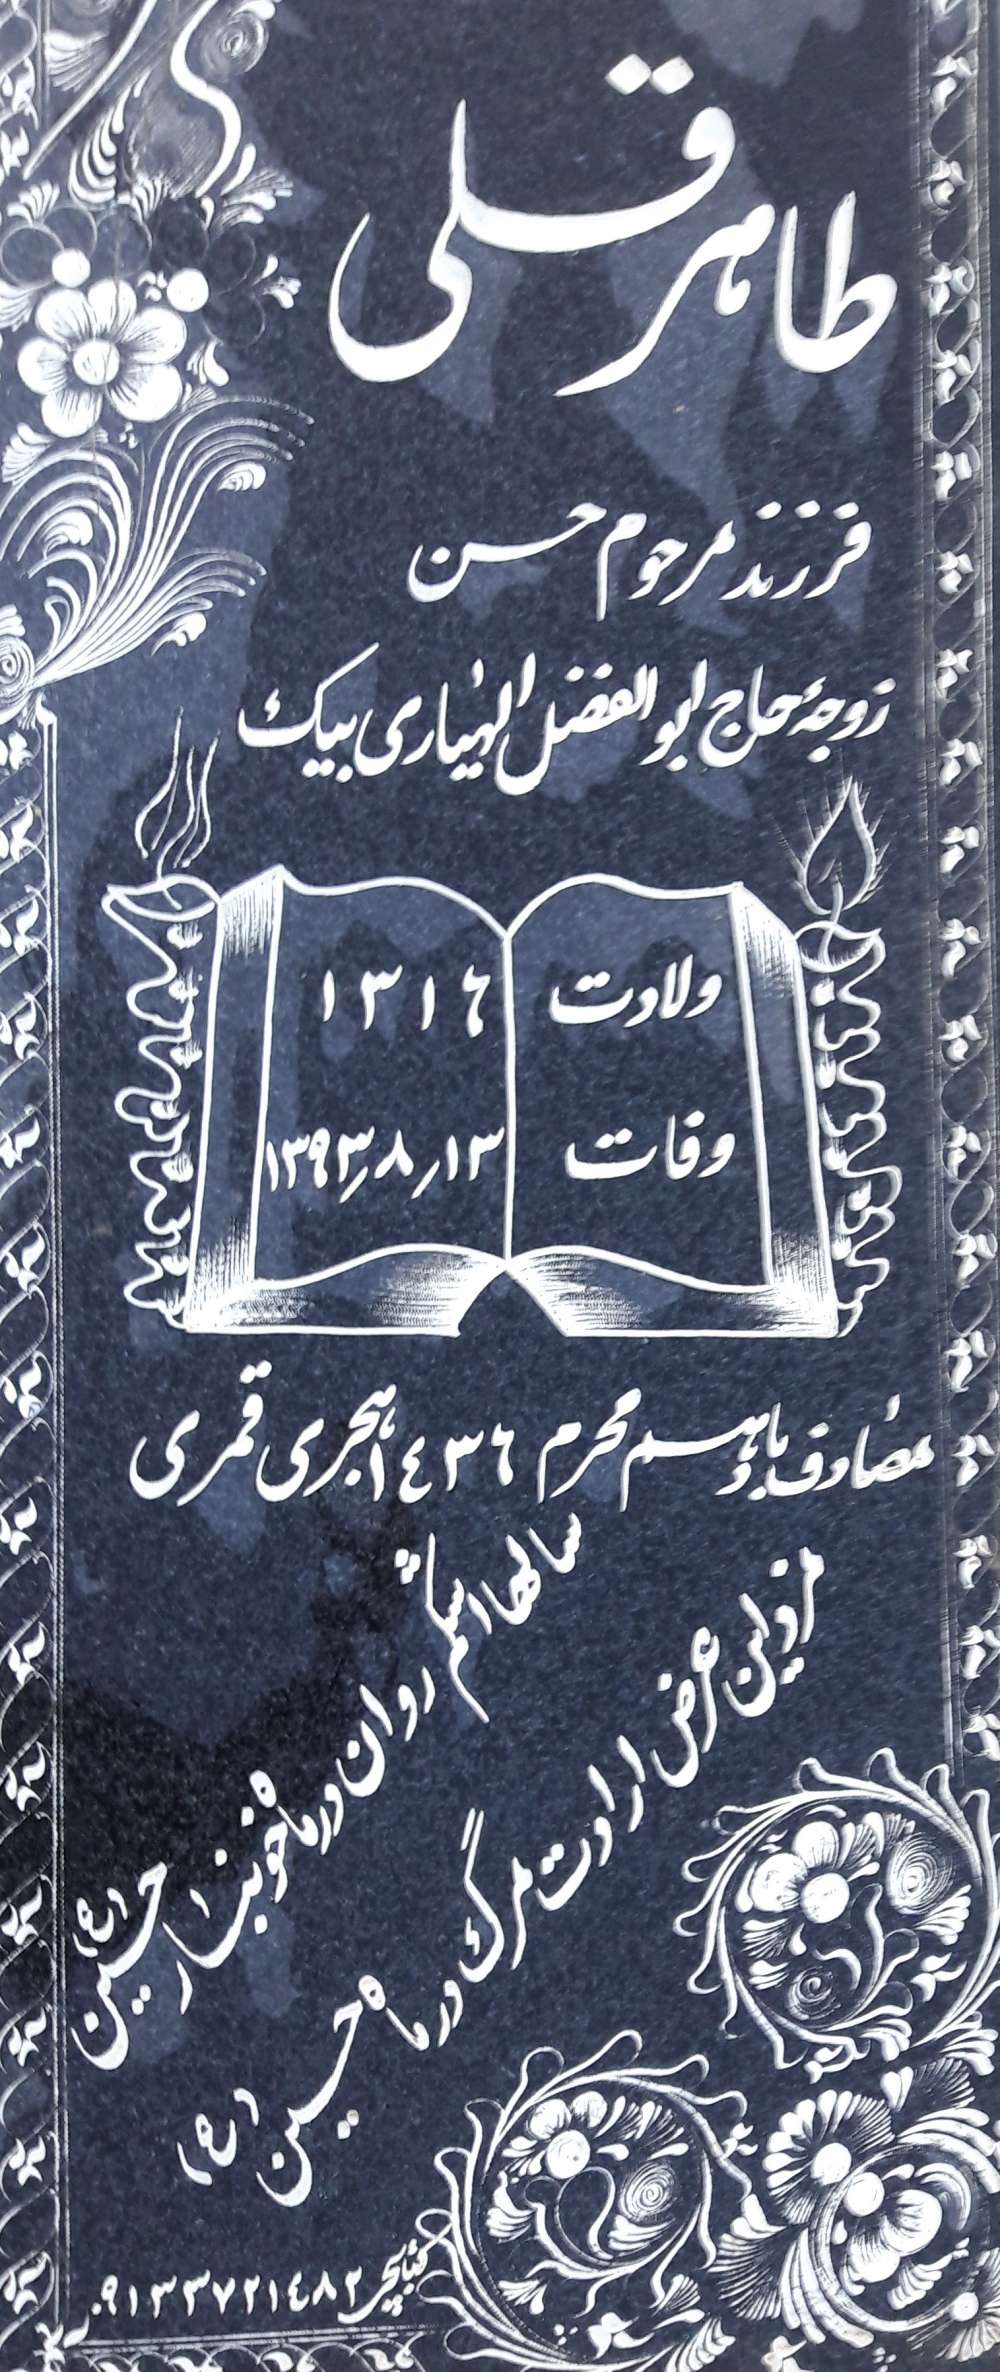 طاهر قلی
فرزند مرحوم حسن
زوجهٔ حاج ابوالفضل الهیاری بیک
ولادت ۱۳۱۶
وفات ۱۳٫۸٫۱۳۹۳
مصادف با دهم محرم ۱٤۳۶ هجری قمری
سالها اشکم روان در ماه خونبار حسین (ع)
مزد این عرض ارادت مرگ در ماه حسین (ع)
۰۹۱۳۳۷۲۱٤۸۲